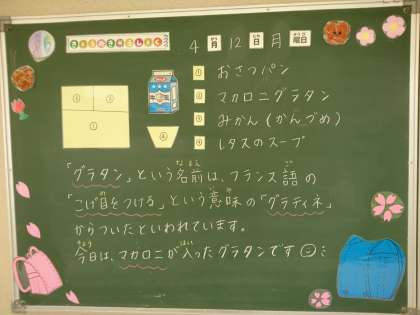 きょうのきゅうしょく
4月12日月曜日
① おさつパン
② マカロニグラタン
③ みかん(かんづめ)
④ レタスのスープ
「グラタン」という名前は、フランス語の
「こげ目をつける」という意味の「グラティネ」
からついたといわれています。
今日は、マカロニが入ったグラタンです